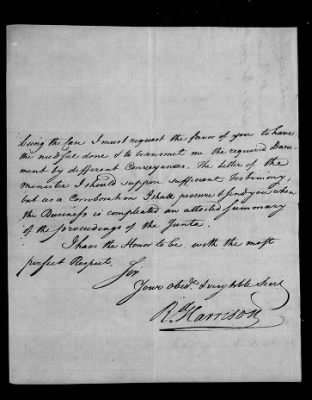 being the Case I must request the favor of you to have
the needful done & to transmit me the required Docu-
ment by different Conveyances. The letter of the
minister I should suppose sufficient Testimony,
but as a Corroboration I shall procure & send you when
the Business is compleated an attested Summary
of the proceedings of the Junta.
I have the Honor to be with the most
perfect Respect
Sir
Your obedt. & very hble Servt
Rd. Harrison